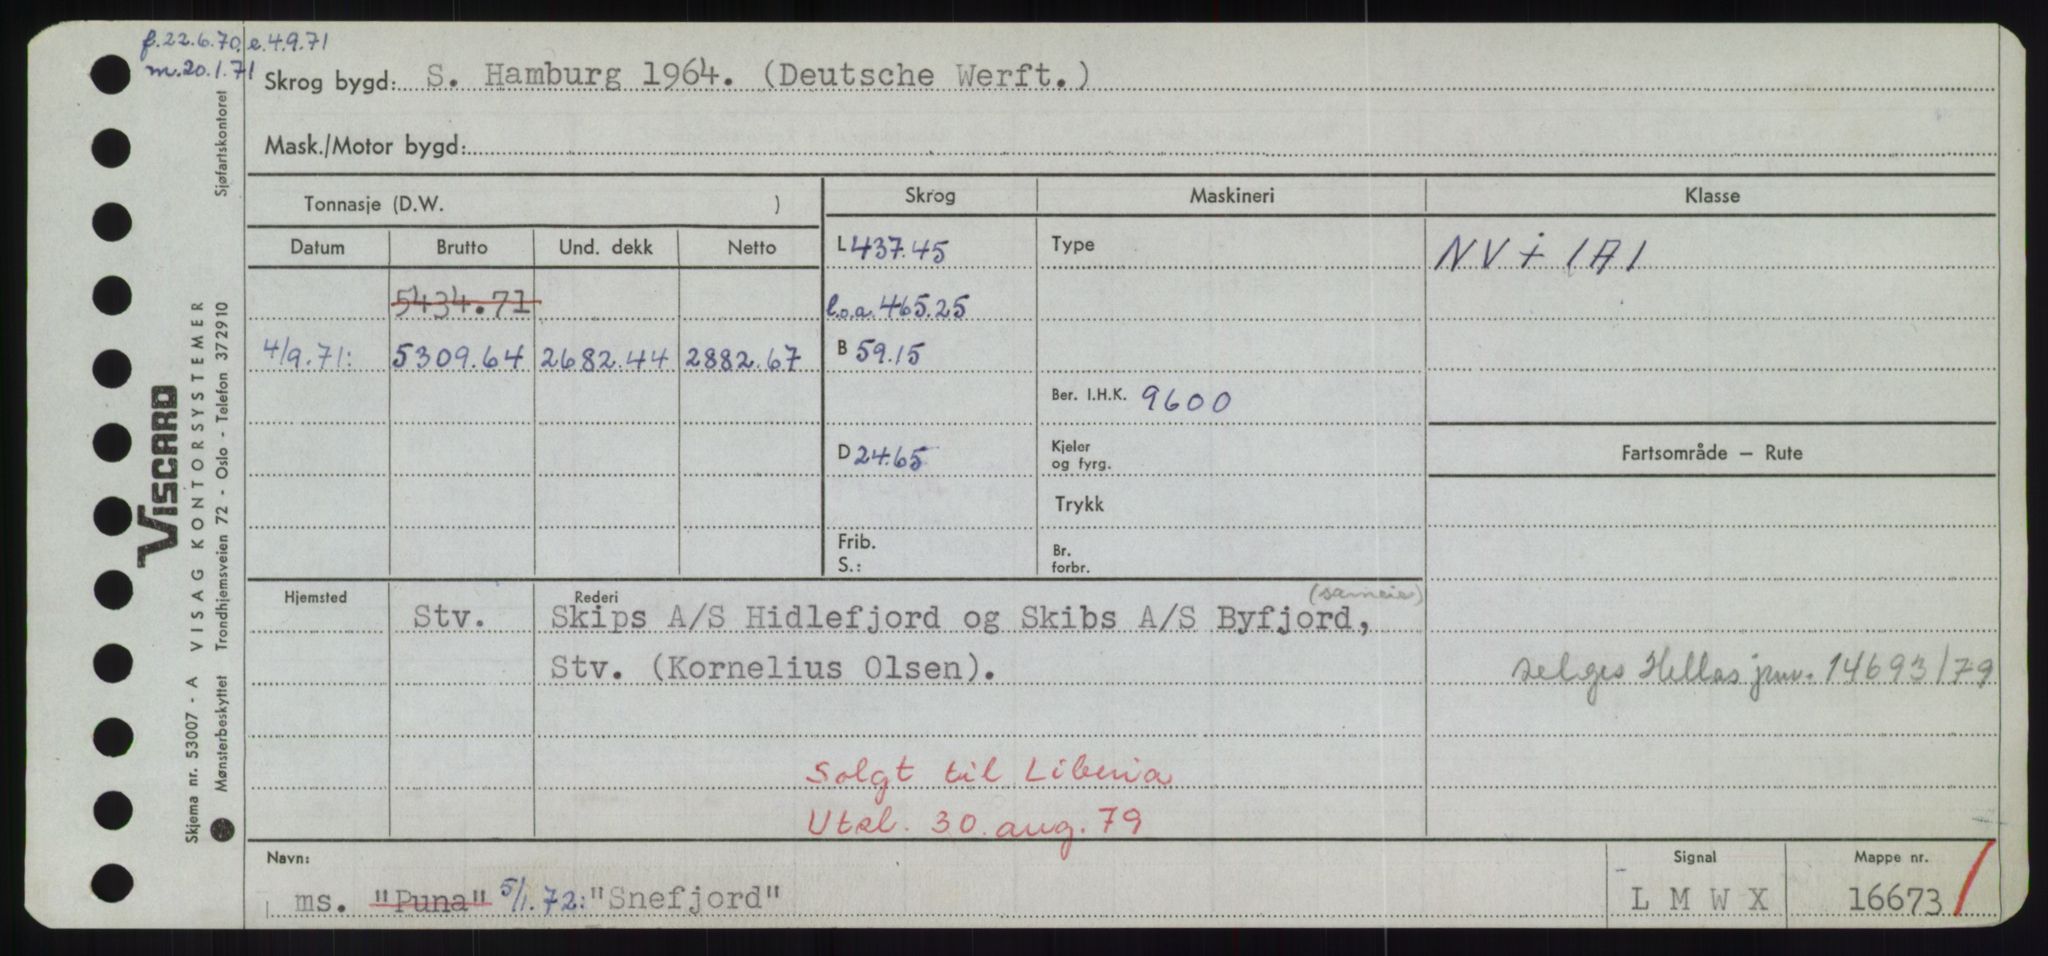 f.22.6.70. e.4.9.71
m.20.1.71
Skrog bygd: S. Hamburg 1964. (Deutsche Werft.)
Mask./Motor bygd:
Tonnasje (D.W. )
Skrog Maskineri Klasse
Datum Brutto Und. dekk Netto
L 437.45 Type NV + 1A1
5434.71 l.o.a. 465.25
4/9.71: 5309.64 2682.44 2882.67 B 59.15
Ber. I.H.K. 9600
D 24.65 Kjeler og fyrg. Fartsområde — Rute
Trykk
Frib. S.: Br. forbr.
Hjemsted Rederi (sameie)
Stv. Skips A/S Hidlefjord og Skibs A/S Byfjord,
Stv. (Kornelius Olsen). selges Hellas jnr. 14693/79
Solgt til Liberia
Utsl. 30. aug. 79
Navn: Signal Mappe nr.
ms. "Puna" 5/1.72: "Snefjord" L M W X 16673
Sjøfartskontoret
VISCARD
VISAG KONTORSYSTEMER
Trondhjemsveien 72 - Oslo - Telefon 372910
Skjema nr. 53007 - A
Mønsterbeskyttet